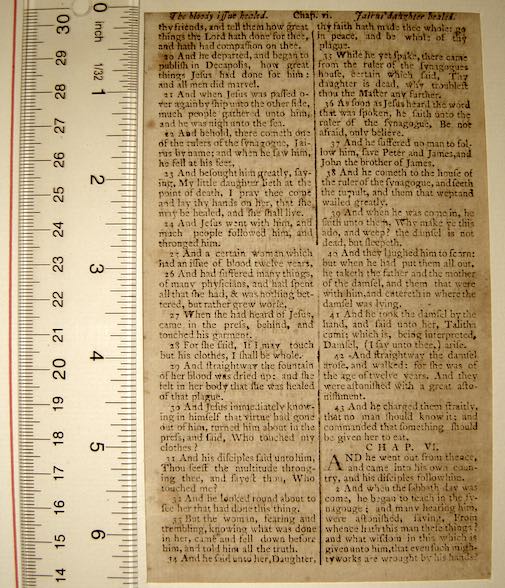 The bloody issue healed. Chap. vi. Jairus' daughter healed.
thy friends, and tell them how great
things the Lord hath done for thee,
and hath had compassion on thee.
20 And he departed, and began to
publish in Decapolis, how great
things Jesus had done for him:
and all men did marvel.
21 And when Jesus was passed o-
ver again by ship unto the other side,
much people gathered unto him,
and he was nigh unto the sea.
22 And behold, there cometh one
of the rulers of the synagogue, Jai-
rus by name; and when he saw him,
he fell at his feet,
23 And besought him greatly, say-
ing, My little daughter lieth at the
point of death, I pray thee come
and lay thy hands on her, that she
may be healed, and she shall live.
24 And Jesus went with him, and
much people followed him, and
thronged him.
25 And a certain woman which
had an issue of blood twelve years,
26 And had suffered many things,
of many physicians, and had spent
all that she had, & was nothing bet-
tered, but rather grew worse,
27 When she had heard of Jesus,
came in the press, behind, and
touched his garment.
28 For she said, If I may touch
but his clothes, I shall be whole.
29 And straightway the fountain
of her blood was dried up; and she
felt in her body that she was healed
of that plague.
30 And Jesus immediately know-
ing in himself that virtue had gone
out of him, turned him about in the
press, and said, Who touched my
clothes?
31 And his disciples said unto him,
Thou seest the multitude throng-
ing thee, and sayest thou, Who
touched me?
32 And he looked round about to
see her that had done this thing.
33 But the woman, fearing and
trembling, knowing what was done
in her, came and fell down before
him, and told him all the truth.
34 And he said unto her, Daughter,
thy faith hath made thee whole; go
in peace, and be whole of thy
plague.
35 While he yet spake, there came
from the ruler of the synagogues
house, certain which said, Thy
daughter is dead, why troublest
thou the Master any further.
36 As soon as Jesus heard the word
that was spoken, he saith unto the
ruler of the synagogue, Be not
afraid, only believe.
37 And he suffered no man to fol-
low him, save Peter and James, and
John the brother of James.
38 And he cometh to the house of
the ruler of the synagogue, and seeth
the tumult, and them that wept and
wailed greatly.
39 And when he was come in, he
saith unto them, Why make ye this
ado, and weep? the damsel is not
dead, but sleepeth.
40 And they laughed him to scorn:
but when he had put them all out,
he taketh the father and the mother
of the damsel, and them that were
with him, and entereth in where the
damsel was lying.
41 And he took the damsel by the
hand, and said unto her, Talitha
cumi; which is, being interpreted,
Damsel, (I say unto thee,) arise.
42 And straightway the damsel
arose, and walked: for she was of
the age of twelve years. And they
were astonished with a great asto-
nishment.
43 And he charged them straitly,
that no man should know it; and
commanded that something should
be given her to eat.
CHAP. VI.
AND he went out from thence,
and came into his own coun-
try, and his disciples follow him.
2 And when the sabbath day was
come, he began to teach in the sy-
nagogue; and many hearing him,
were astonished, saying, From
whence hath this man these things?
and what wisdom in this which is
given unto him, that even such migh-
ty works are wrought by his hands?
0 inch 1/32
1
2
3
4
5
6
30
29
28
27
26
25
24
23
22
21
20
19
18
17
16
15
14